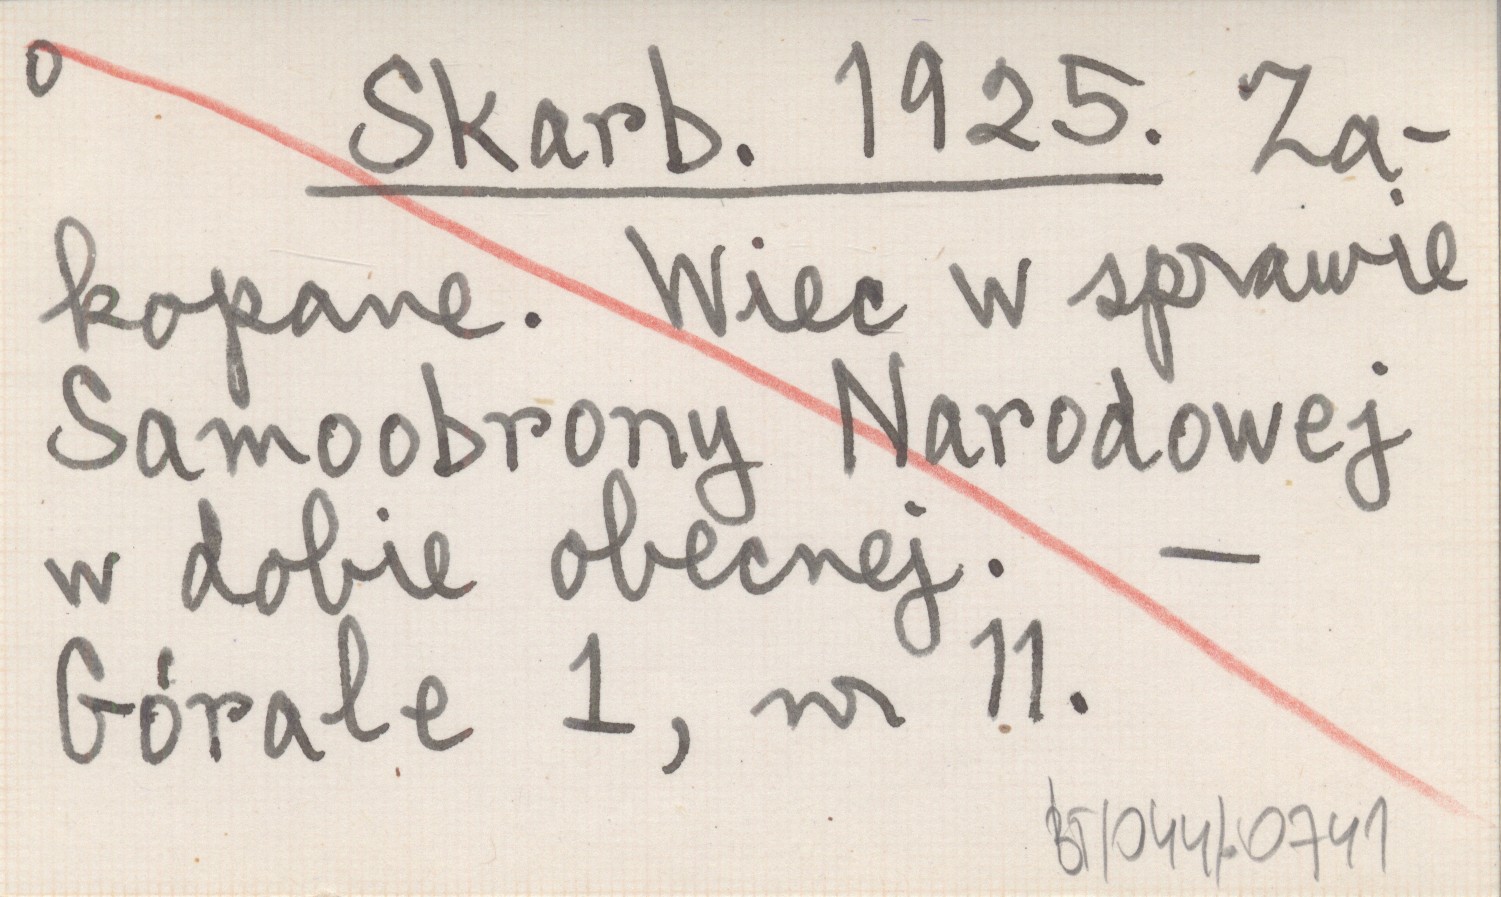 o Skarb. 1925. Za-
kopane. Wiec w sprawie
Samoobrony Narodowej
w dobie obecnej. —
Górale 1, nr 11.
BT/044/0741